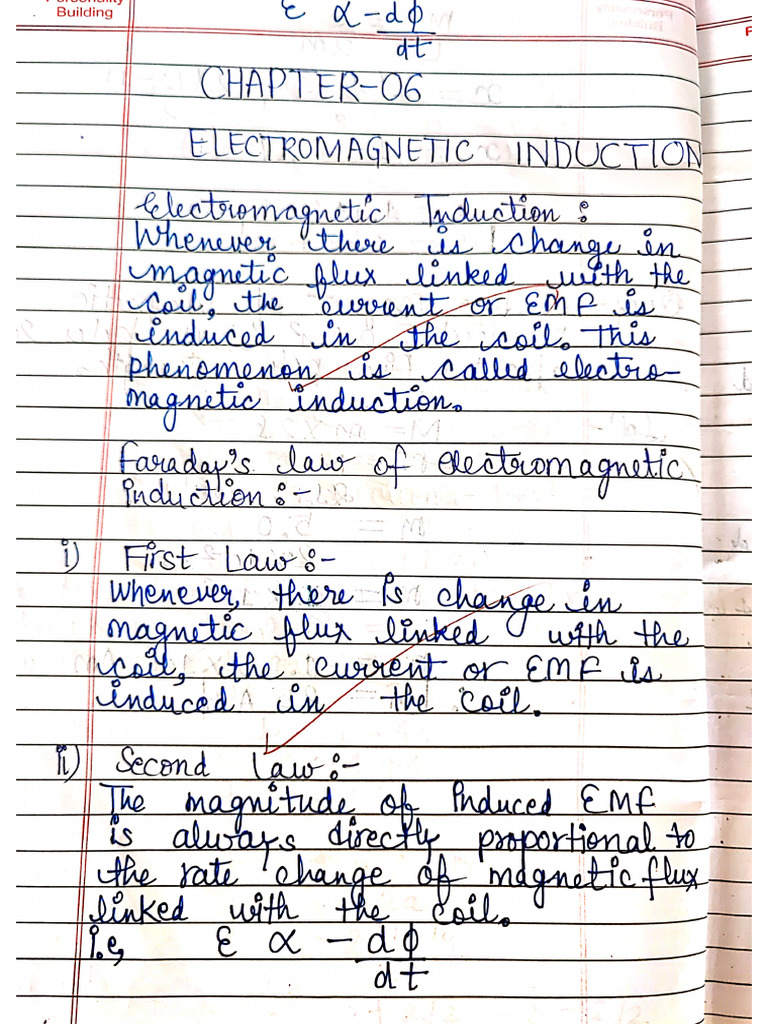 Personality
Building
ε α -dϕ
dt
CHAPTER-06
ELECTROMAGNETIC INDUCTION
Electromagnetic Induction :
Whenever there is change in
magnetic flux linked with the
coil, the current or EMF is
induced in the coil. This
phenomenon is called electro-
magnetic induction.
Faraday's law of electromagnetic
induction :-
i) First Law :-
Whenever, there is change in
magnetic flux linked with the
coil, the current or EMF is
induced in the coil.
ii) Second Law :-
The magnitude of induced EMF
is always directly proportional to
the rate change of magnetic flux
linked with the coil.
i.e, ε α - dϕ
dt